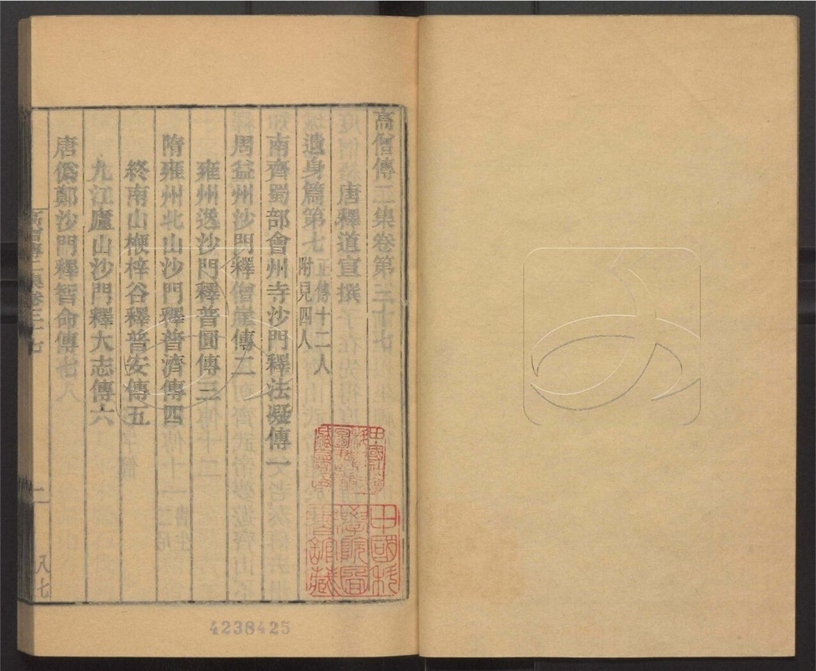 高僧傳二集卷第三十七
唐釋道宣撰
遺身篇第七 正傳十二人 附見四人
南齊蜀部會州寺沙門釋法凝傳一
周益州沙門釋僧崖傳二
雍州逸沙門釋普圓傳三
隋雍州北山沙門釋普濟傳四
終南山楩梓谷釋普安傳五
九江廬山沙門釋大志傳六
唐偽鄭沙門釋智命傳七
高僧傳二集卷三十七
一
八七
中國科學院圖書館藏
4238425